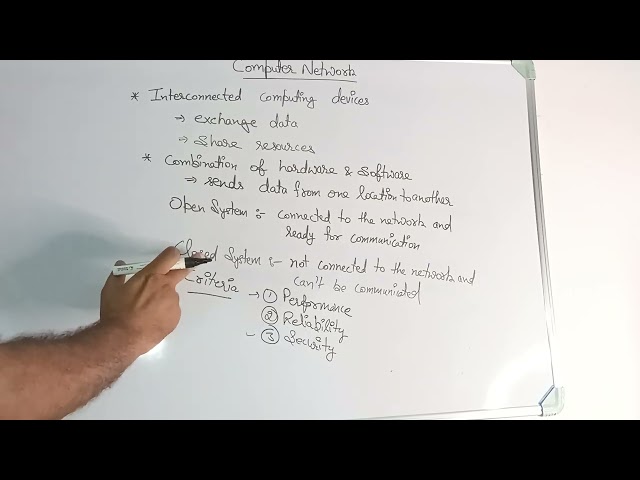 Computer Network
* Interconnected computing devices
→ exchange data
→ Share resources
* Combination of hardware & Software
→ sends data from one location to another
Open System :- connected to the network and
ready for communication
Closed System :- not connected to the network and
can't be communicated
Criteria → ① Performance
② Reliability
- ③ Security